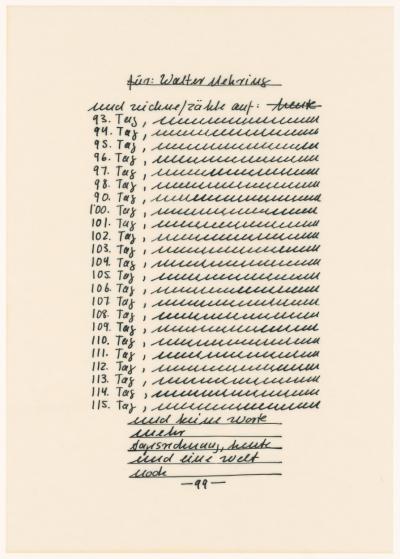 für: Walter Mehring
und zeichne/zähle auf: heute
93. Tag,
94. Tag,
95. Tag,
96. Tag,
97. Tag,
98. Tag,
90. Tag,
100. Tag,
101. Tag,
102. Tag,
103. Tag,
104. Tag,
105. Tag,
106. Tag,
107. Tag,
108. Tag,
109. Tag,
110. Tag,
111. Tag,
112. Tag,
113. Tag,
114. Tag,
115. Tag,
und keine Worte
mehr
Tagesrechnung, heute
und eine Welt
noch
—99—